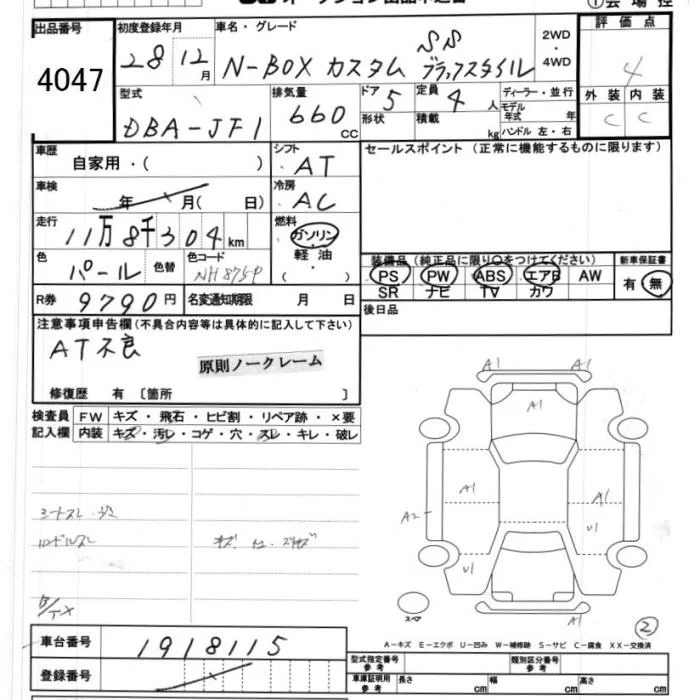 ①会場控
出品番号
4047
初度登録年月
28 12月
車名・グレード
N-BOX カスタム SS ブラックスタイル
2WD
・
4WD
評価点
4
外装 内装
C C
型式
DBA-JF1
排気量
660cc
ドア 5
形状
定員 4人
積載 kg
ディーラー・並行
モデル年式 年
ハンドル 左・右
車歴
自家用・( )
シフト
AT
セールスポイント(正常に機能するものに限ります)
車検
年 月( 日)
冷房
AC
走行
11万8千304km
燃料
ガソリン
軽油
( ・ )
色
パール
色替
色コード
NH875P
装備品(純正品に限り○をつけてください)
PS PW ABS エアB AW
SR ナビ TV カワ
新車保証書
有 無
R券
9790円
名変通知期限 月 日
後日品
注意事項申告欄(不具合内容等は具体的に記入して下さい)
AT不良
原則ノークレーム
修復歴 有 〔箇所 〕
検査員
記入欄
FW キズ・飛石・ヒビ割・リペア跡・×要
内装 キズ・汚レ・コゲ・穴・スレ・キレ・破レ
A1 A1
A1
A1 A1
A2
U1
U1
A1
スペア
②
A-キズ E-エクボ U-凹み W-補修跡 S-サビ C-腐食 XX-交換済
車台番号
1918115
登録番号
型式指定番号
参考
類別区分番号
参考
車庫証明用
参考
長さ cm 幅 cm 高さ cm